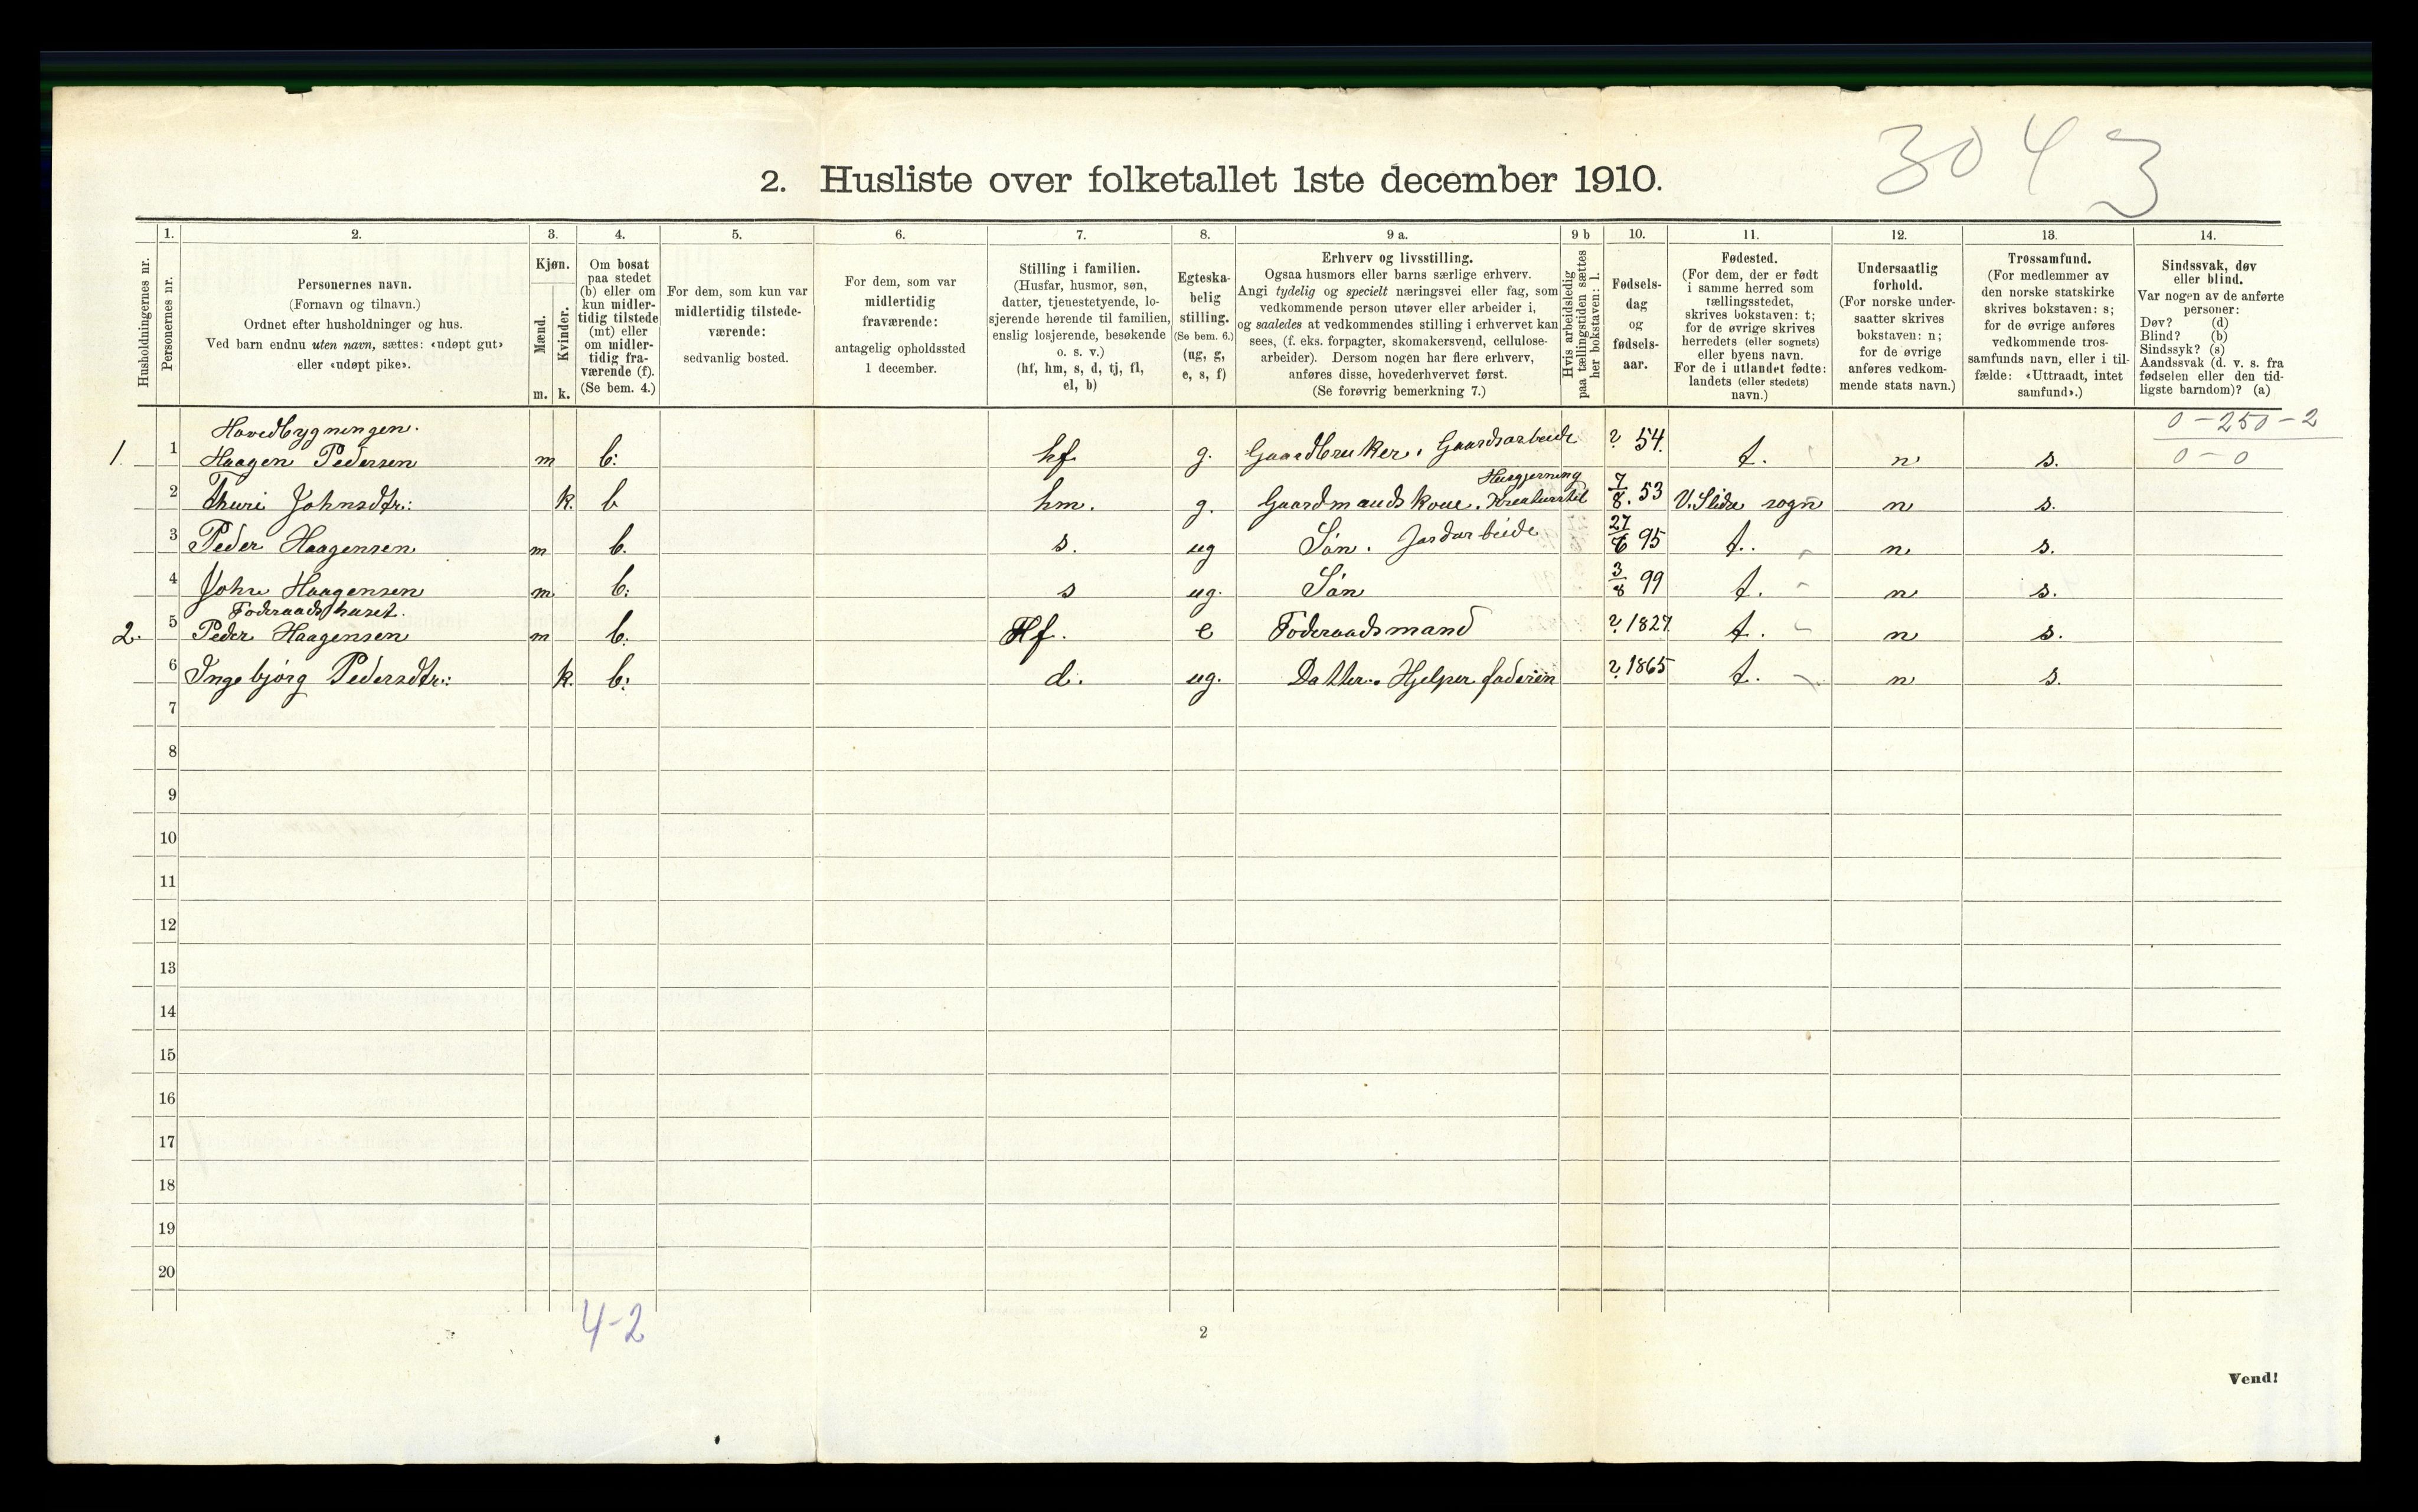 3043
2. Husliste over folketallet 1ste december 1910.
Husholdningernes nr.
1.
Personernes nr.
2.
Personernes navn.
(Fornavn og tilnavn.)
Ordnet efter husholdninger og hus.
Ved barn endnu uten navn, sættes: «udøpt gut»
eller «udøpt pike».
3.
Kjøn.
Mænd.
Kvinder.
m. k.
4.
Om bosat
paa stedet
(b) eller om
kun midler-
tidig tilstede
(mt) eller
om midler-
tidig fra-
værende (f).
(Se bem. 4.)
5.
For dem, som kun var
midlertidig tilstede-
værende:
sedvanlig bosted.
6.
For dem, som var
midlertidig
fraværende:
antagelig opholdssted
1 december.
7.
Stilling i familien.
(Husfar, husmor, søn,
datter, tjenestetyende, lo-
sjerende hørende til familien,
enslig losjerende, besøkende
o. s. v.)
(hf, hm, s, d, tj, fl,
el, b)
8.
Egteska-
belig
stilling.
(Se bem. 6.)
(ug, g,
e, s, f)
9 a.
Erhverv og livsstilling.
Ogsaa husmors eller barns særlige erhverv.
Angi tydelig og specielt næringsvei eller fag, som
vedkommende person utøver eller arbeider i,
og saaledes at vedkommendes stilling i erhvervet kan
sees, (f. eks. forpagter, skomakersvend, cellulose-
arbeider). Dersom nogen har flere erhverv,
anføres disse, hovederhvervet først.
(Se forøvrig bemerkning 7.)
9 b
Hvis arbeidsledig
paa tællingstiden sættes
her bokstaven: l.
10.
Fødsels-
dag
og
fødsels-
aar.
11.
Fødested.
(For dem, der er født
i samme herred som
tællingsstedet,
skrives bokstaven: t;
for de øvrige skrives
herredets (eller sognets)
eller byens navn.
For de i utlandet fødte:
landets (eller stedets)
navn.)
12.
Undersaatlig
forhold.
(For norske under-
saatter skrives
bokstaven: n;
for de øvrige
anføres vedkom-
mende stats navn.)
13.
Trossamfund.
(For medlemmer av
den norske statskirke
skrives bokstaven: s;
for de øvrige anføres
vedkommende tros-
samfunds navn, eller i til-
fælde: «Uttraadt, intet
samfund».)
14.
Sindssvak, døv
eller blind.
Var nogen av de anførte
personer:
Døv? (d)
Blind? (b)
Sindssyk? (s)
Aandssvak (d. v. s. fra
fødselen eller den tid-
ligste barndom)? (a)
0-250-2
0-0
Hovedbygningen.
1. 1 Haagen Pedersen m b. hf g. Gaardbruker. Gaardsarbeide ? 54. t. n s.
Husgjerning
2 Thuri Johnsdtr.: k. b hm. g. Gaardmandskone. Kreaturstel 7/8. 53 V. Slidre sogn n s.
3 Peder Haagensen m b. s. ug Søn. Jordarbeide 27/6 95 t. n s.
4 John Haagensen m b. s ug. Søn 3/8 99 t. n s.
Foderaadshuset.
2. 5 Peder Haagensen m b. Hf. e Foderaadsmand ? 1827. t. n s.
6 Ingebjørg Pedersdtr.: k. b. d. ug. Datter. Hjelper faderen ? 1865 t. n s.
7
8
9
10
11
12
13
14
15
16
17
18
19
20
4-2
2
Vend!